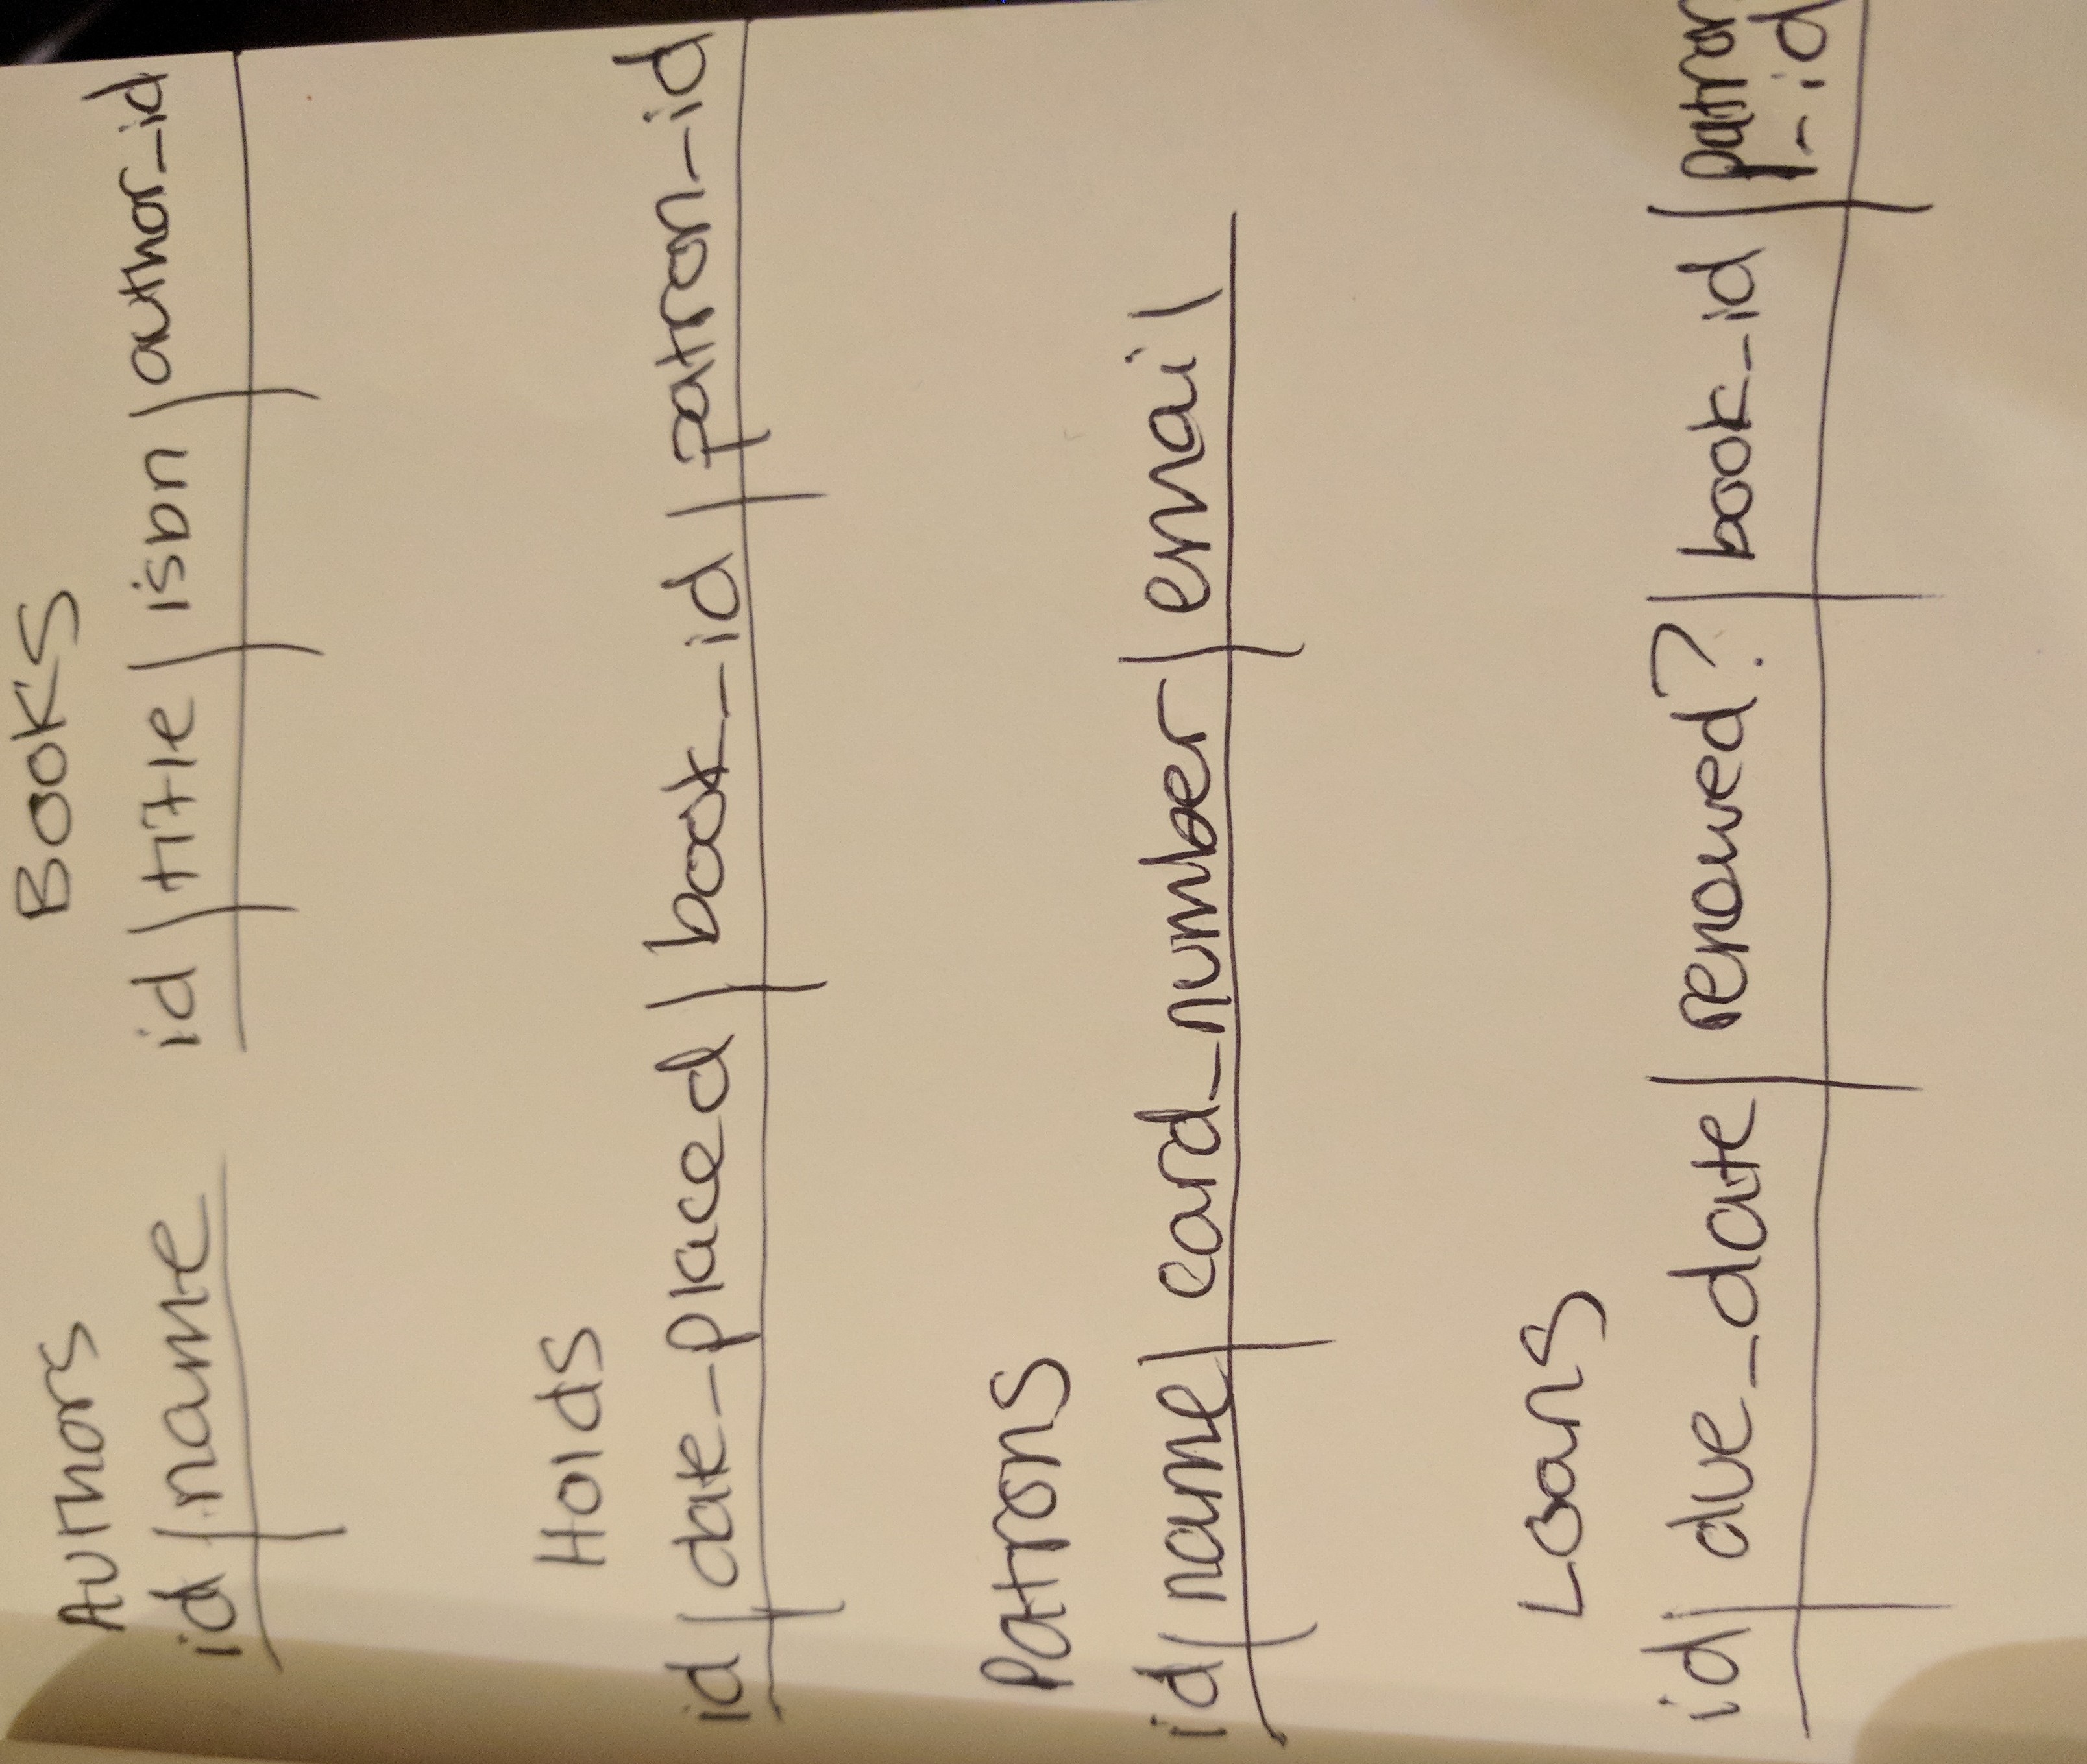 Authors
id | name
Books
id | title | isbn | author_id
Holds
id | date_placed | book_id | patron_id
Patrons
id | name | card_number | email
Loans
id | due_date | renewed? | book_id | patron
_id